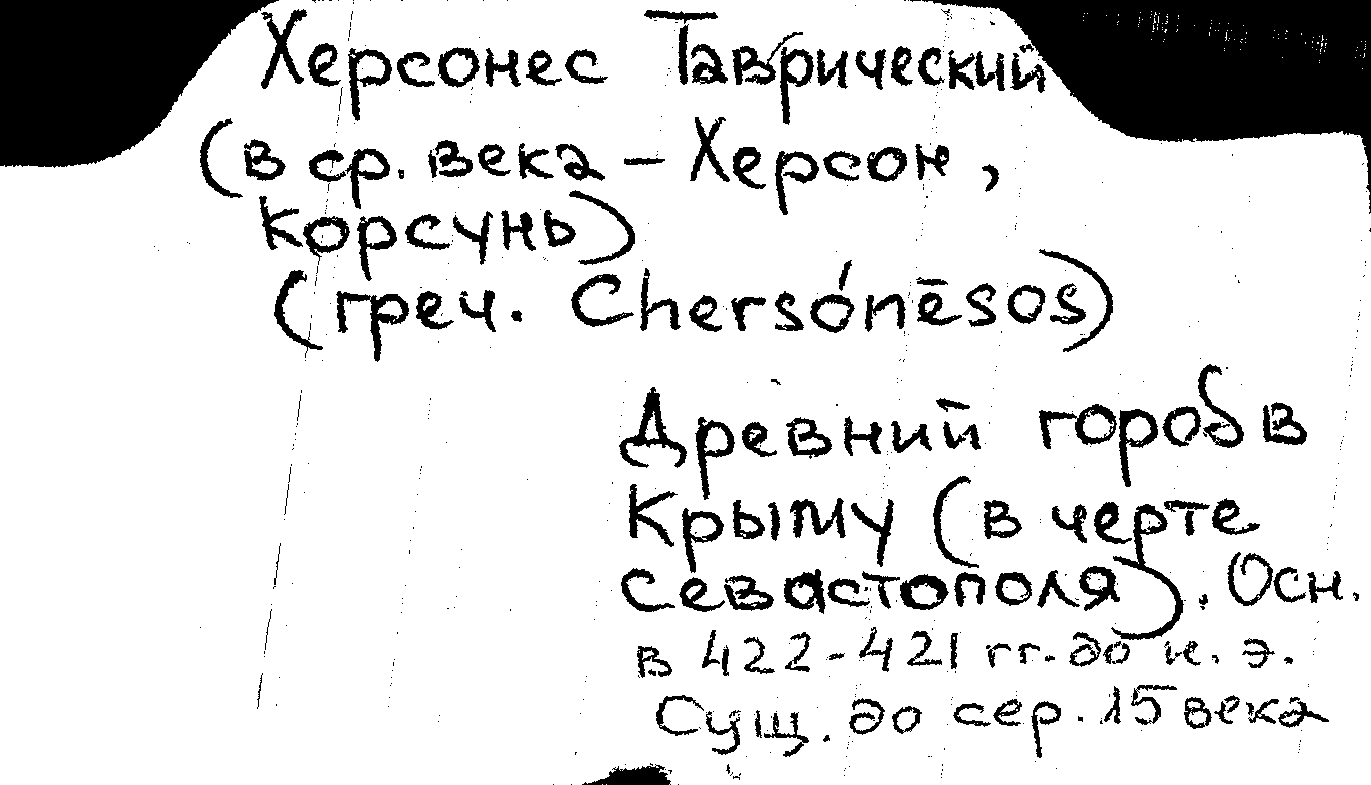 Херсонес Таврический
(в ср. века – Херсон,
Корсунь)
(греч. Chersónēsos)
Древний город в
Крыму (в черте
Севастополя). Осн.
в 422-421 гг. до н. э.
Сущ. до сер. 15 века